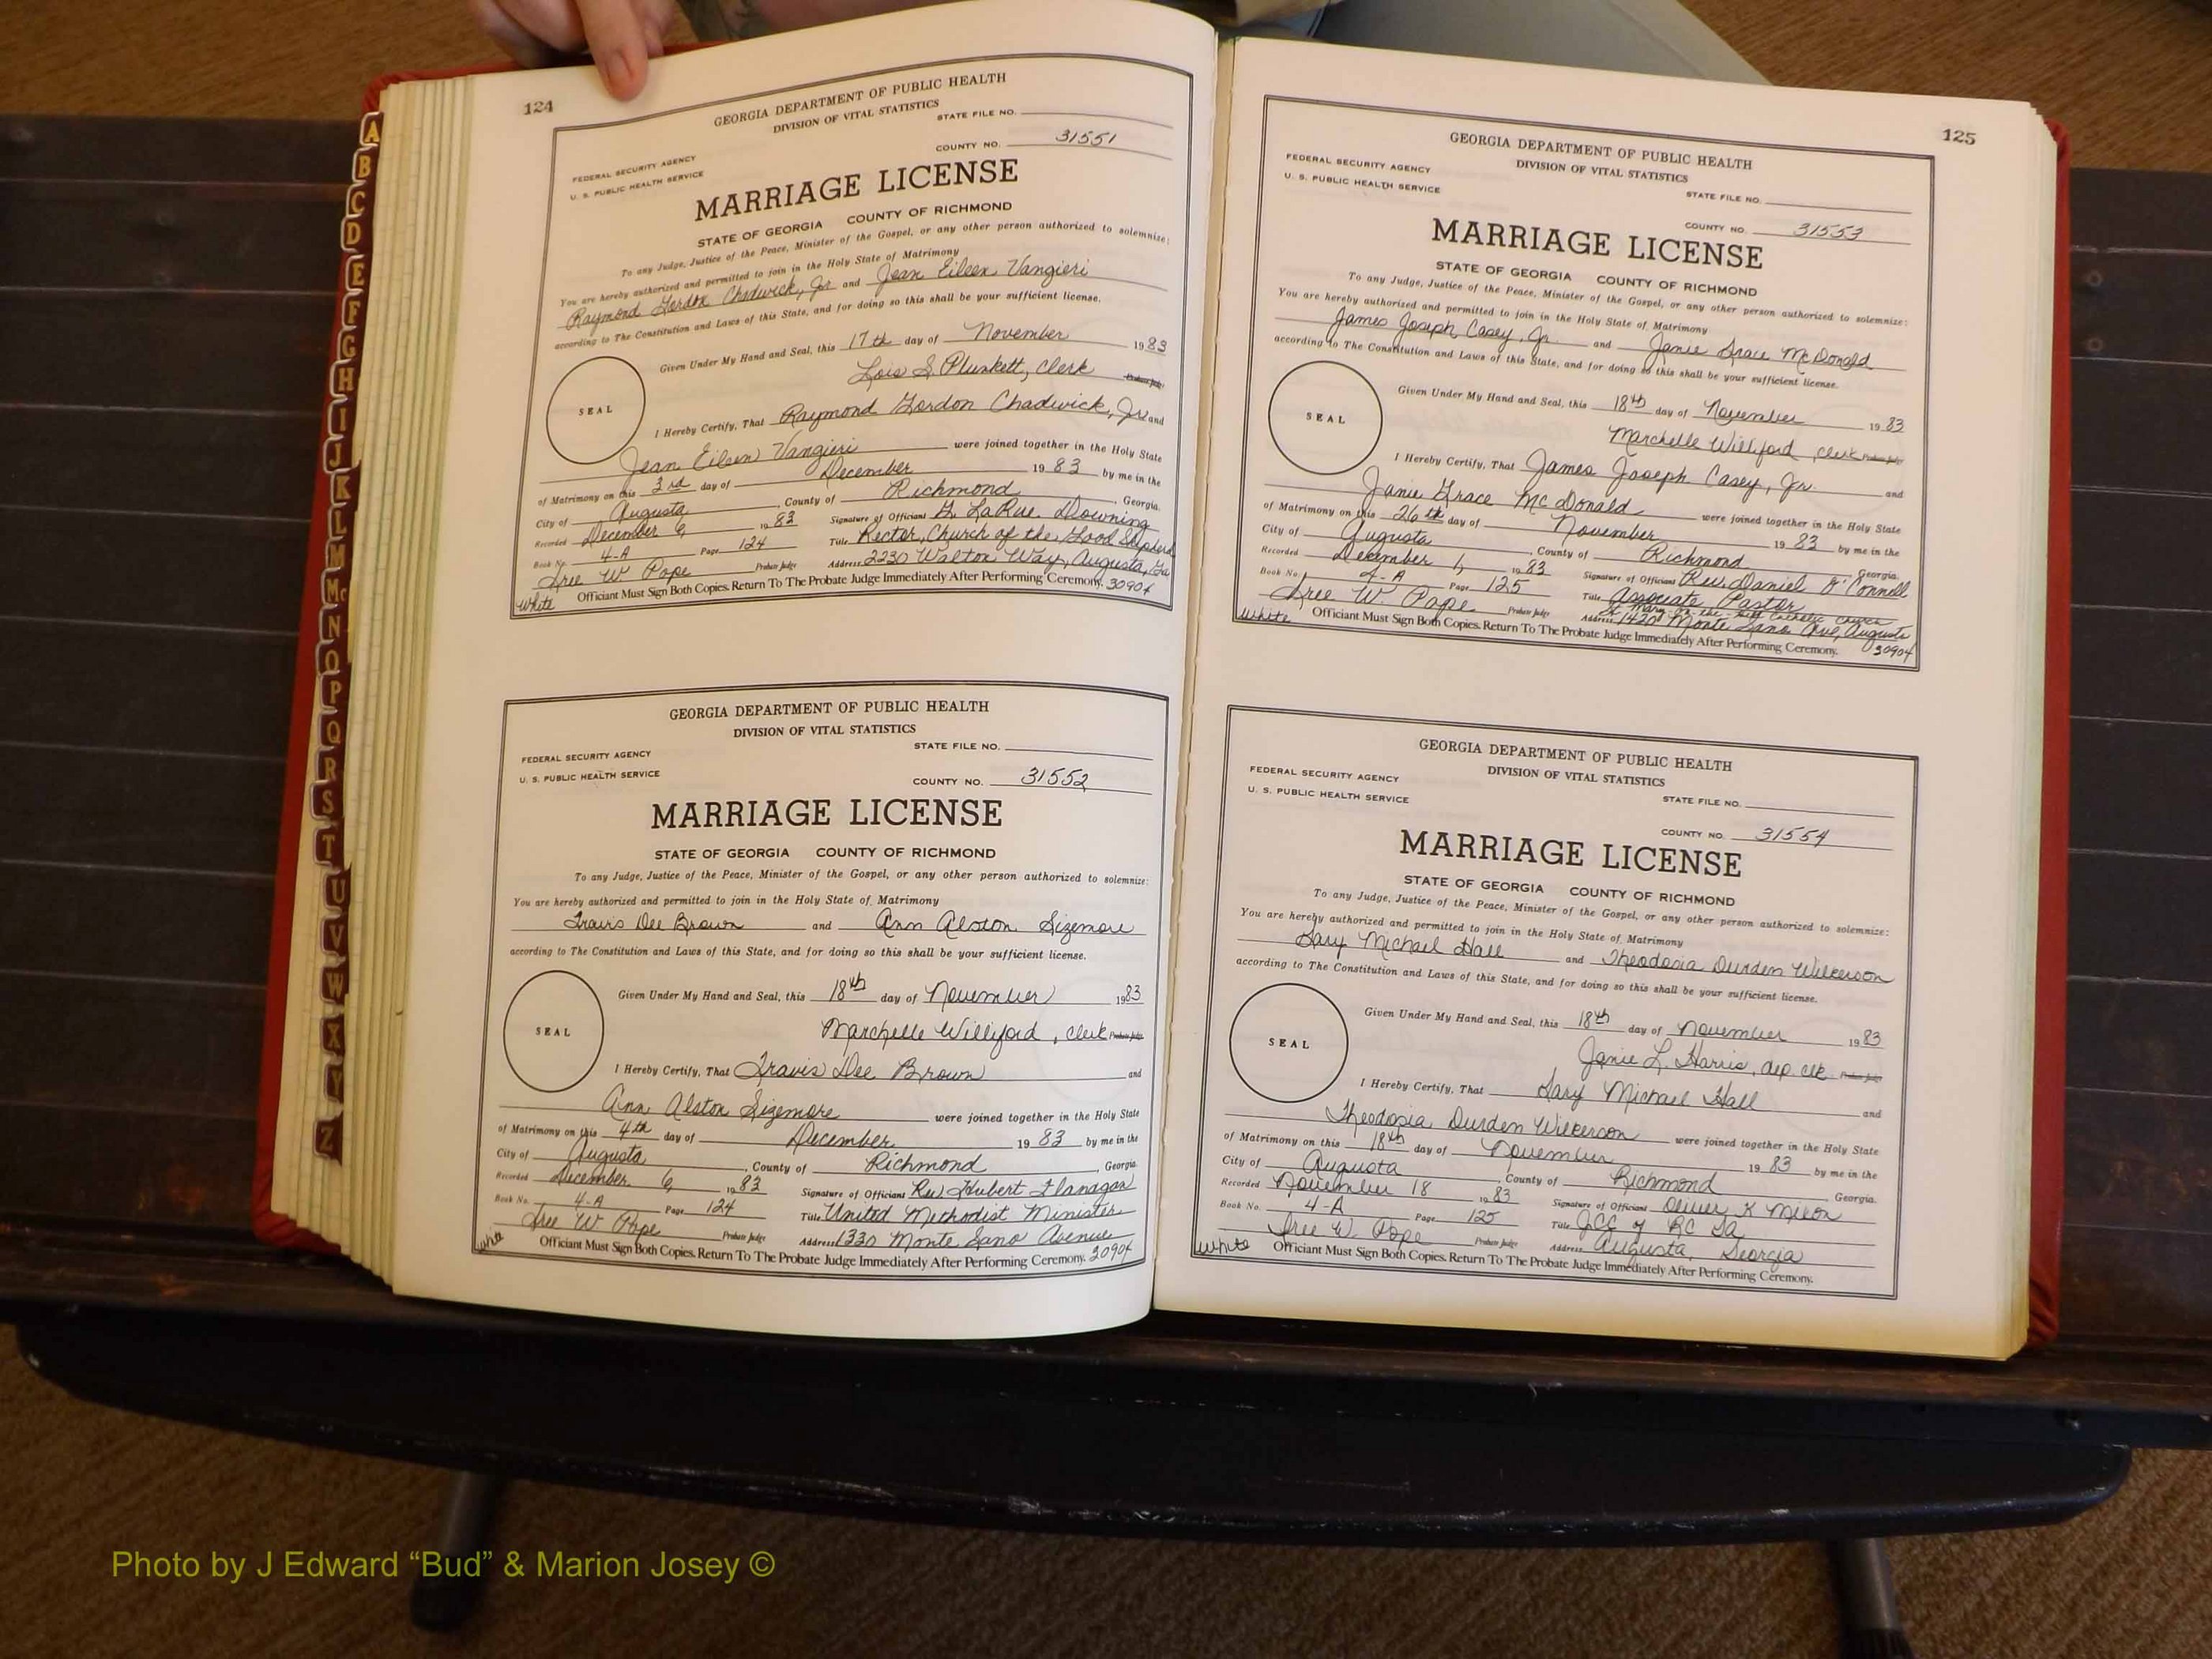 A
B
C
D
E
F
G
H
I
J
K
L
M
Mc
N
O
P
Q
R
S
T
U
V
W
X
Y
Z
124
GEORGIA DEPARTMENT OF PUBLIC HEALTH
DIVISION OF VITAL STATISTICS
STATE FILE NO.
FEDERAL SECURITY AGENCY
COUNTY NO. 31551
U. S. PUBLIC HEALTH SERVICE
MARRIAGE LICENSE
STATE OF GEORGIA COUNTY OF RICHMOND
To any Judge, Justice of the Peace, Minister of the Gospel, or any other person authorized to solemnize:
You are hereby authorized and permitted to join in the Holy State of Matrimony
Raymond Gordon Chadwick, Jr and Jean Eileen Vangieri
according to The Constitution and Laws of this State, and for doing so this shall be your sufficient license.
Given Under My Hand and Seal, this 17th day of November 1983
Lois S. Plunkett, clerk Probate Judge
SEAL
I Hereby Certify, That Raymond Gordon Chadwick, Jr and
Jean Eileen Vangieri were joined together in the Holy State
of Matrimony on this 3rd day of December 1983 by me in the
City of Augusta, County of Richmond, Georgia.
Recorded December 6, 1983 Signature of Officiant G. LaRue Downing
Book No. 4-A Page 124 Title Rector, Church of the Good Shepherd
Iree W. Pope Probate Judge Address 2230 Walton Way, Augusta, Ga
White Officiant Must Sign Both Copies. Return To The Probate Judge Immediately After Performing Ceremony. 30904
GEORGIA DEPARTMENT OF PUBLIC HEALTH
DIVISION OF VITAL STATISTICS
FEDERAL SECURITY AGENCY STATE FILE NO.
U. S. PUBLIC HEALTH SERVICE COUNTY NO. 31552
MARRIAGE LICENSE
STATE OF GEORGIA COUNTY OF RICHMOND
To any Judge, Justice of the Peace, Minister of the Gospel, or any other person authorized to solemnize:
You are hereby authorized and permitted to join in the Holy State of Matrimony
Travis Dee Brown and Ann Alston Sizemore
according to The Constitution and Laws of this State, and for doing so this shall be your sufficient license.
Given Under My Hand and Seal, this 18th day of November 1983
Marchelle Williford, clerk Probate Judge
SEAL
I Hereby Certify, That Travis Dee Brown and
Ann Alston Sizemore were joined together in the Holy State
of Matrimony on this 4th day of December 1983 by me in the
City of Augusta, County of Richmond, Georgia.
Recorded December 6, 1983 Signature of Officiant Rev Hubert Flanagan
Book No. 4-A Page 124 Title United Methodist Minister
Iree W. Pope Probate Judge Address 1330 Monte Sano Avenue
White Officiant Must Sign Both Copies. Return To The Probate Judge Immediately After Performing Ceremony. 30904
125
GEORGIA DEPARTMENT OF PUBLIC HEALTH
DIVISION OF VITAL STATISTICS
FEDERAL SECURITY AGENCY
U. S. PUBLIC HEALTH SERVICE STATE FILE NO.
COUNTY NO. 31553
MARRIAGE LICENSE
STATE OF GEORGIA COUNTY OF RICHMOND
To any Judge, Justice of the Peace, Minister of the Gospel, or any other person authorized to solemnize:
You are hereby authorized and permitted to join in the Holy State of Matrimony
James Joseph Casey, Jr. and Janie Grace McDonald
according to The Constitution and Laws of this State, and for doing so this shall be your sufficient license.
Given Under My Hand and Seal, this 18th day of November 1983
Marchelle Williford, clerk Probate Judge
SEAL
I Hereby Certify, That James Joseph Casey, Jr. and
Janie Grace McDonald were joined together in the Holy State
of Matrimony on this 26th day of November 1983 by me in the
City of Augusta, County of Richmond, Georgia.
Recorded December 1, 1983 Signature of Officiant Rev. Daniel O'Connell
Book No. 4-A Page 125 Title Associate Pastor
St. Mary-on-the-Hill Catholic Church
Iree W. Pope Probate Judge Address 1420 Monte Sano Ave, Augusta
White Officiant Must Sign Both Copies. Return To The Probate Judge Immediately After Performing Ceremony. 30904
GEORGIA DEPARTMENT OF PUBLIC HEALTH
DIVISION OF VITAL STATISTICS
FEDERAL SECURITY AGENCY
U. S. PUBLIC HEALTH SERVICE STATE FILE NO.
COUNTY NO. 31554
MARRIAGE LICENSE
STATE OF GEORGIA COUNTY OF RICHMOND
To any Judge, Justice of the Peace, Minister of the Gospel, or any other person authorized to solemnize:
You are hereby authorized and permitted to join in the Holy State of Matrimony
Gary Michael Hall and Theodosia Durden Wilkerson
according to The Constitution and Laws of this State, and for doing so this shall be your sufficient license.
Given Under My Hand and Seal, this 18th day of November 1983
Janie L. Harris, dep. clk Probate Judge
SEAL
I Hereby Certify, That Gary Michael Hall and
Theodosia Durden Wilkerson were joined together in the Holy State
of Matrimony on this 18th day of November 1983 by me in the
City of Augusta, County of Richmond, Georgia.
Recorded November 18 1983 Signature of Officiant Oliver K Mixon
Book No. 4-A Page 125 Title JCC of RC Ga
Iree W. Pope Probate Judge Address Augusta, Georgia
White Officiant Must Sign Both Copies. Return To The Probate Judge Immediately After Performing Ceremony.
Photo by J Edward “Bud” & Marion Josey ©